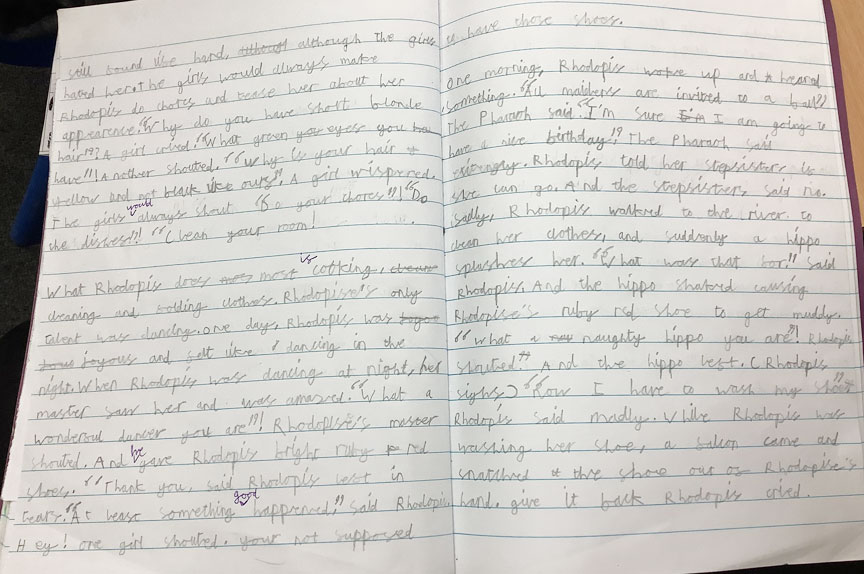 still tound like hard, although although the girls
hated her. The girls would always make
Rhodopis do chores and tease her about her
appearence. "Why do you have short blonde
hair"? A girl cried. "What green you eyes you
have"! Another shouted. "Why is your hair
yellow and not black like ours". A girl wispered.
The girls would always shout "Do your chores"! "Do
the dishes"! "Clean your room!
What Rhodopis does most is cooking,
cleaning and folding clothes. Rhodopise's only
talent was dancing. one day, Rhodopis was
joyous and felt like dancing in the
night. When Rhodopis was dancing at night, her
master saw her and was amazed. "What a
wonderoul dancer you are"! Rhodopise's master
shouted. And he gave Rhodopis bright ruby red
shoes. "Thank you, said Rhodopis lest in
tears. "At least something good happrened," said Rhodopis
Hey! one girl shouted. your not supposed
to have those shoes.
one morning, Rhodopis woke up and heard
something. "All maidens are invited to a ball"
The Pharaoh said. "I'm sure I am going to
have a nice birthday." The Pharaoh said
excitingly. Rhodopis told her stepsisters is
she can go. And the stepsisters said no.
sadly, Rhodopis walked to the river to
clean her clothes, and suddenly a hippo
splushes her. "What was that for." Said
Rhodopis. And the hippo causing
Rhodopise's ruby red shoe to get muddy.
"What a naughty hippo you are"! Rhodopis
shouted." And the hippo lest. (Rhodopis
sighs) "Now I have to wash my shoes"
Rhodopis said madly. While Rhodopis was
washing her shoe, a falcon came and
snatched the shoe out of Rhodopise's
hand. give it back Rhodopis cried.